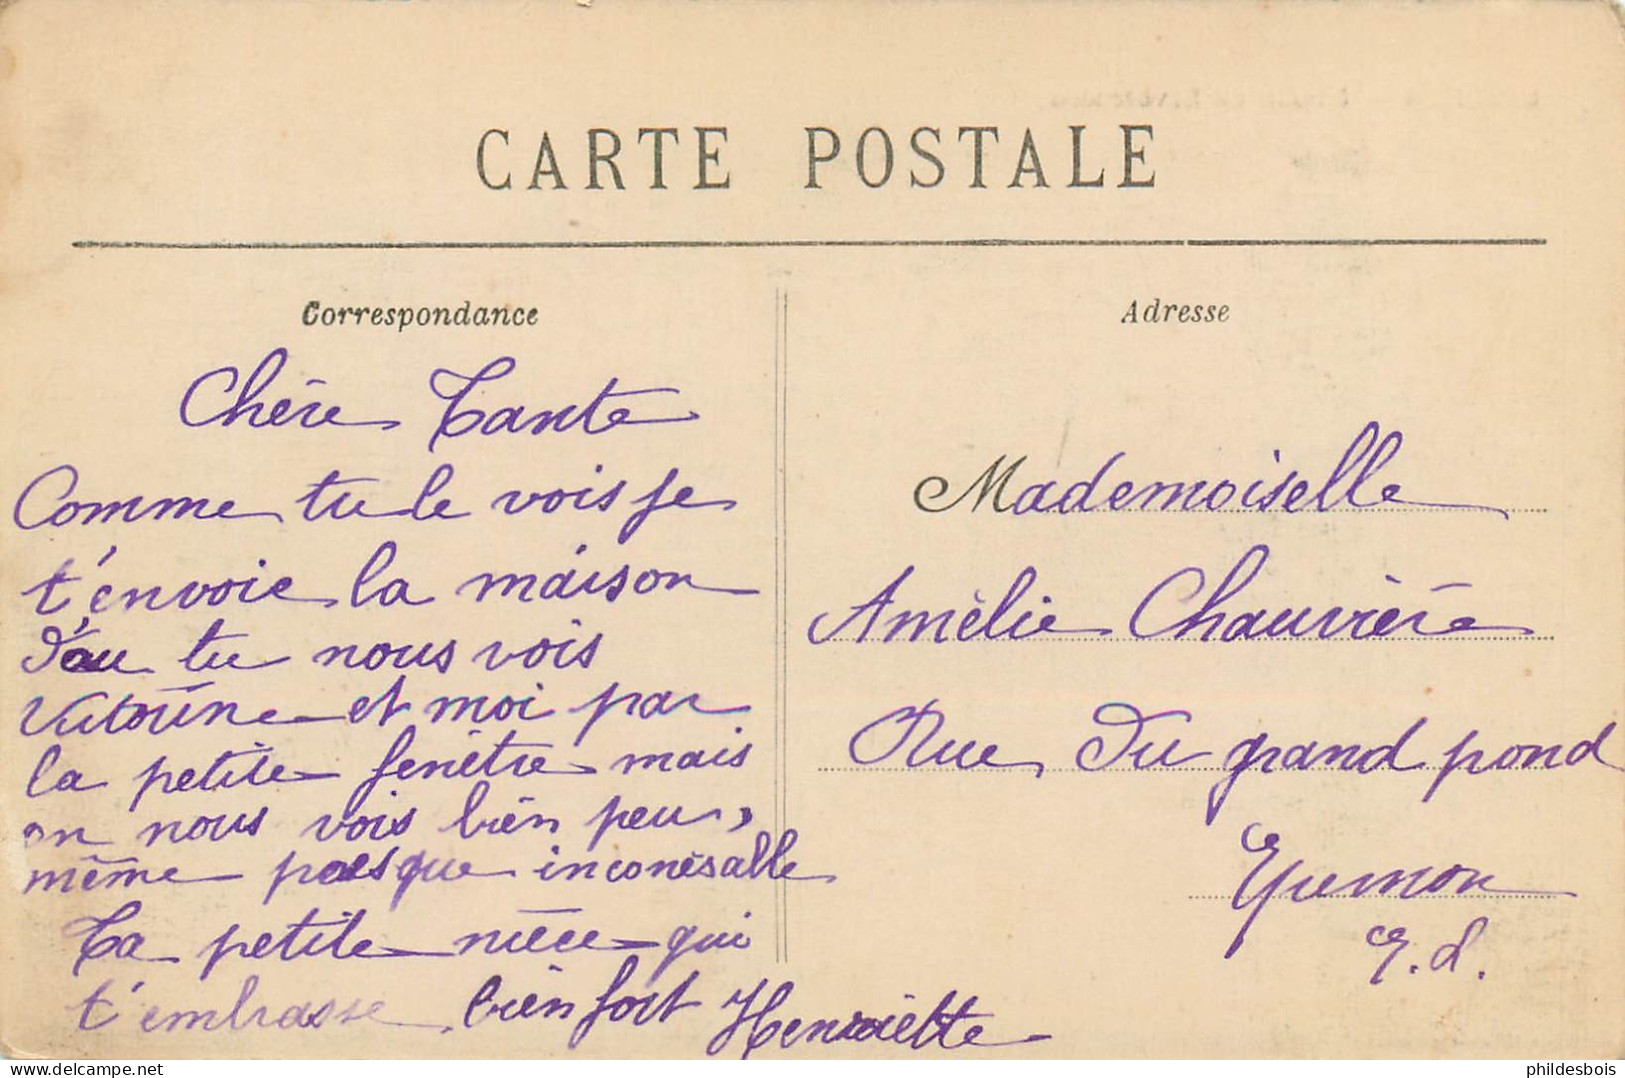 CARTE POSTALE
Correspondance
Chère Tante
Comme tu le vois je
t'envoie la maison
d'ou tu nous vois
Victorine et moi par
la petite fenêtre mais
on nous vois bien peu,
même presque inconésable
Ta petite nièce qui
t'embrasse bien fort Henriette
Adresse
Mademoiselle
Amélie Chauvière
Rue du grand pond
Epernon
E. L.
delcampe.net
phildesbois